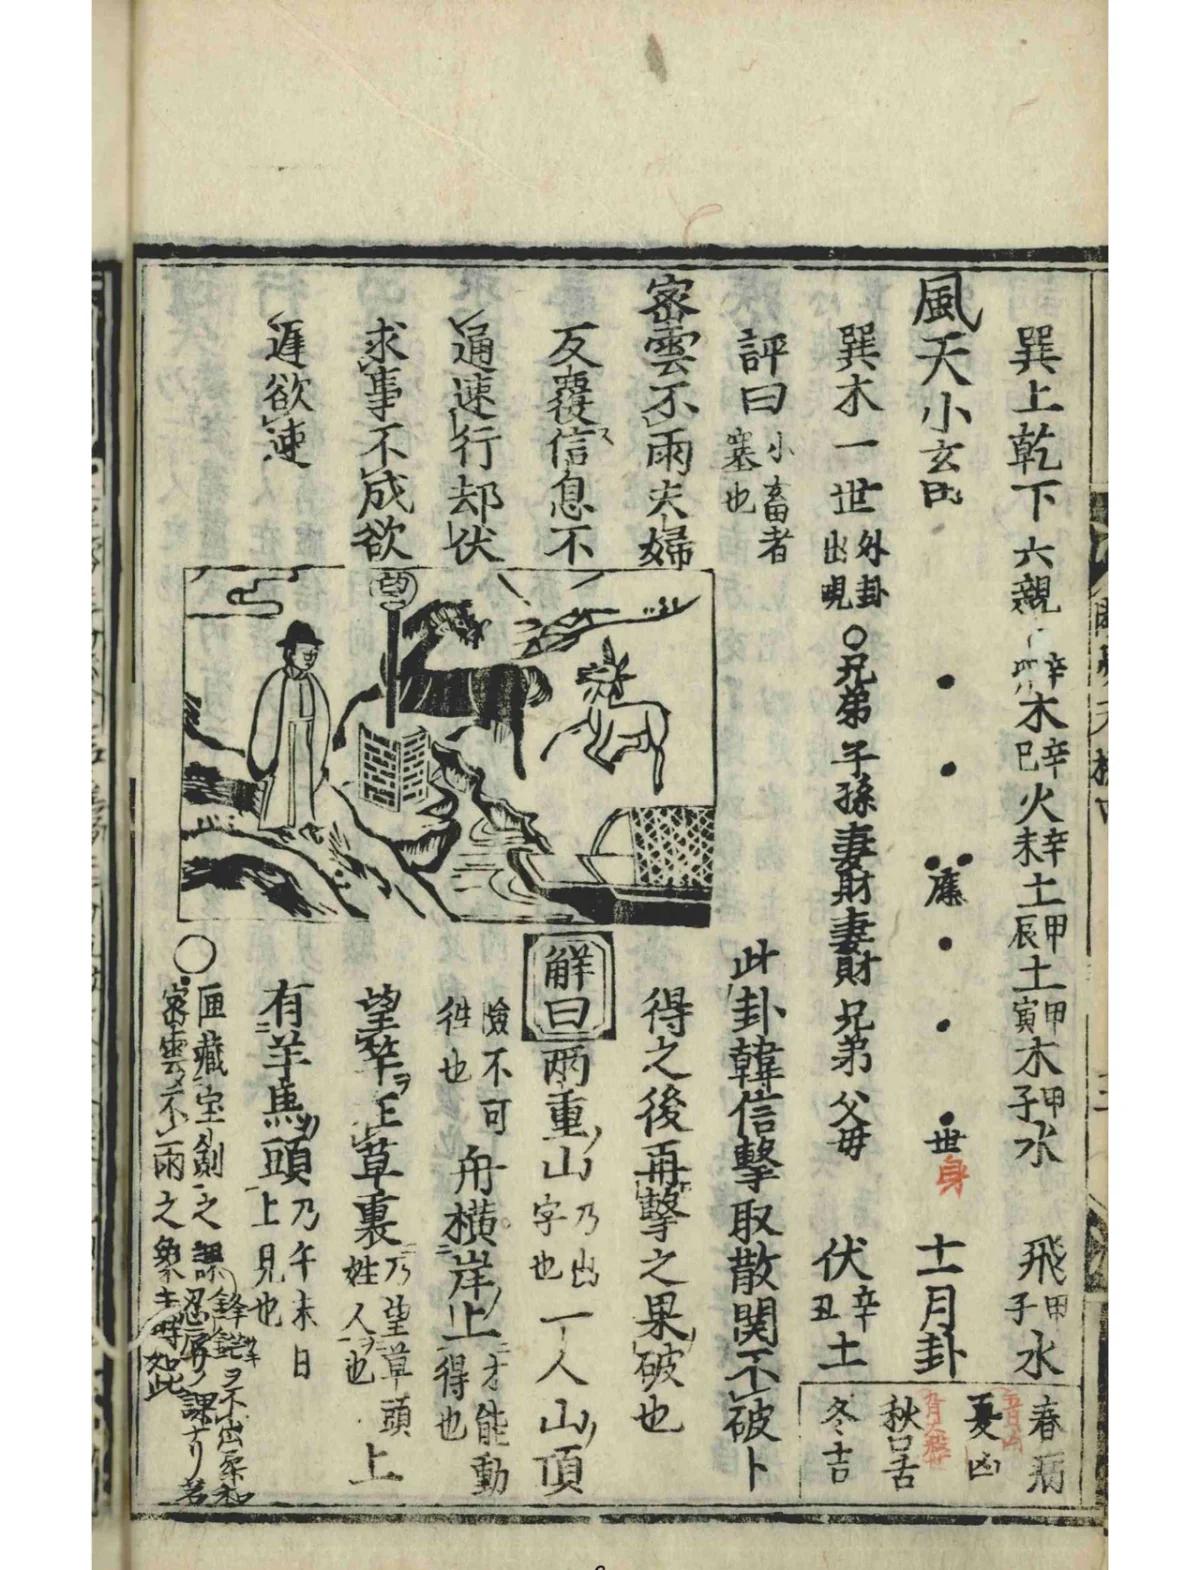 巽上乾下 六親 辛木辛巳火辛未土甲辰土甲寅木甲子水 飛甲子水
春病
夏凶
秋口舌
冬吉
風天小畜
應
世
身
十一月卦
巽木一世 外卦出現 〇兄弟 子孫 妻財 妻財 兄弟 父母 伏辛丑土
評曰 小畜者塞也
此卦韓信擊取散関不破卜
密雲不雨夫婦
得之後再擊之果破也
反覆信息不
解曰
兩重山乃出字也一人山頂
通速行却伏
險不可往也 舟橫岸上才能動得也
求事不成欲
望竿在草裏乃望草頭姓人也 上
遲欲速
有羊馬頭上乃午未日見也
〇
匣藏宝剣之課
密雲不雨之象
望